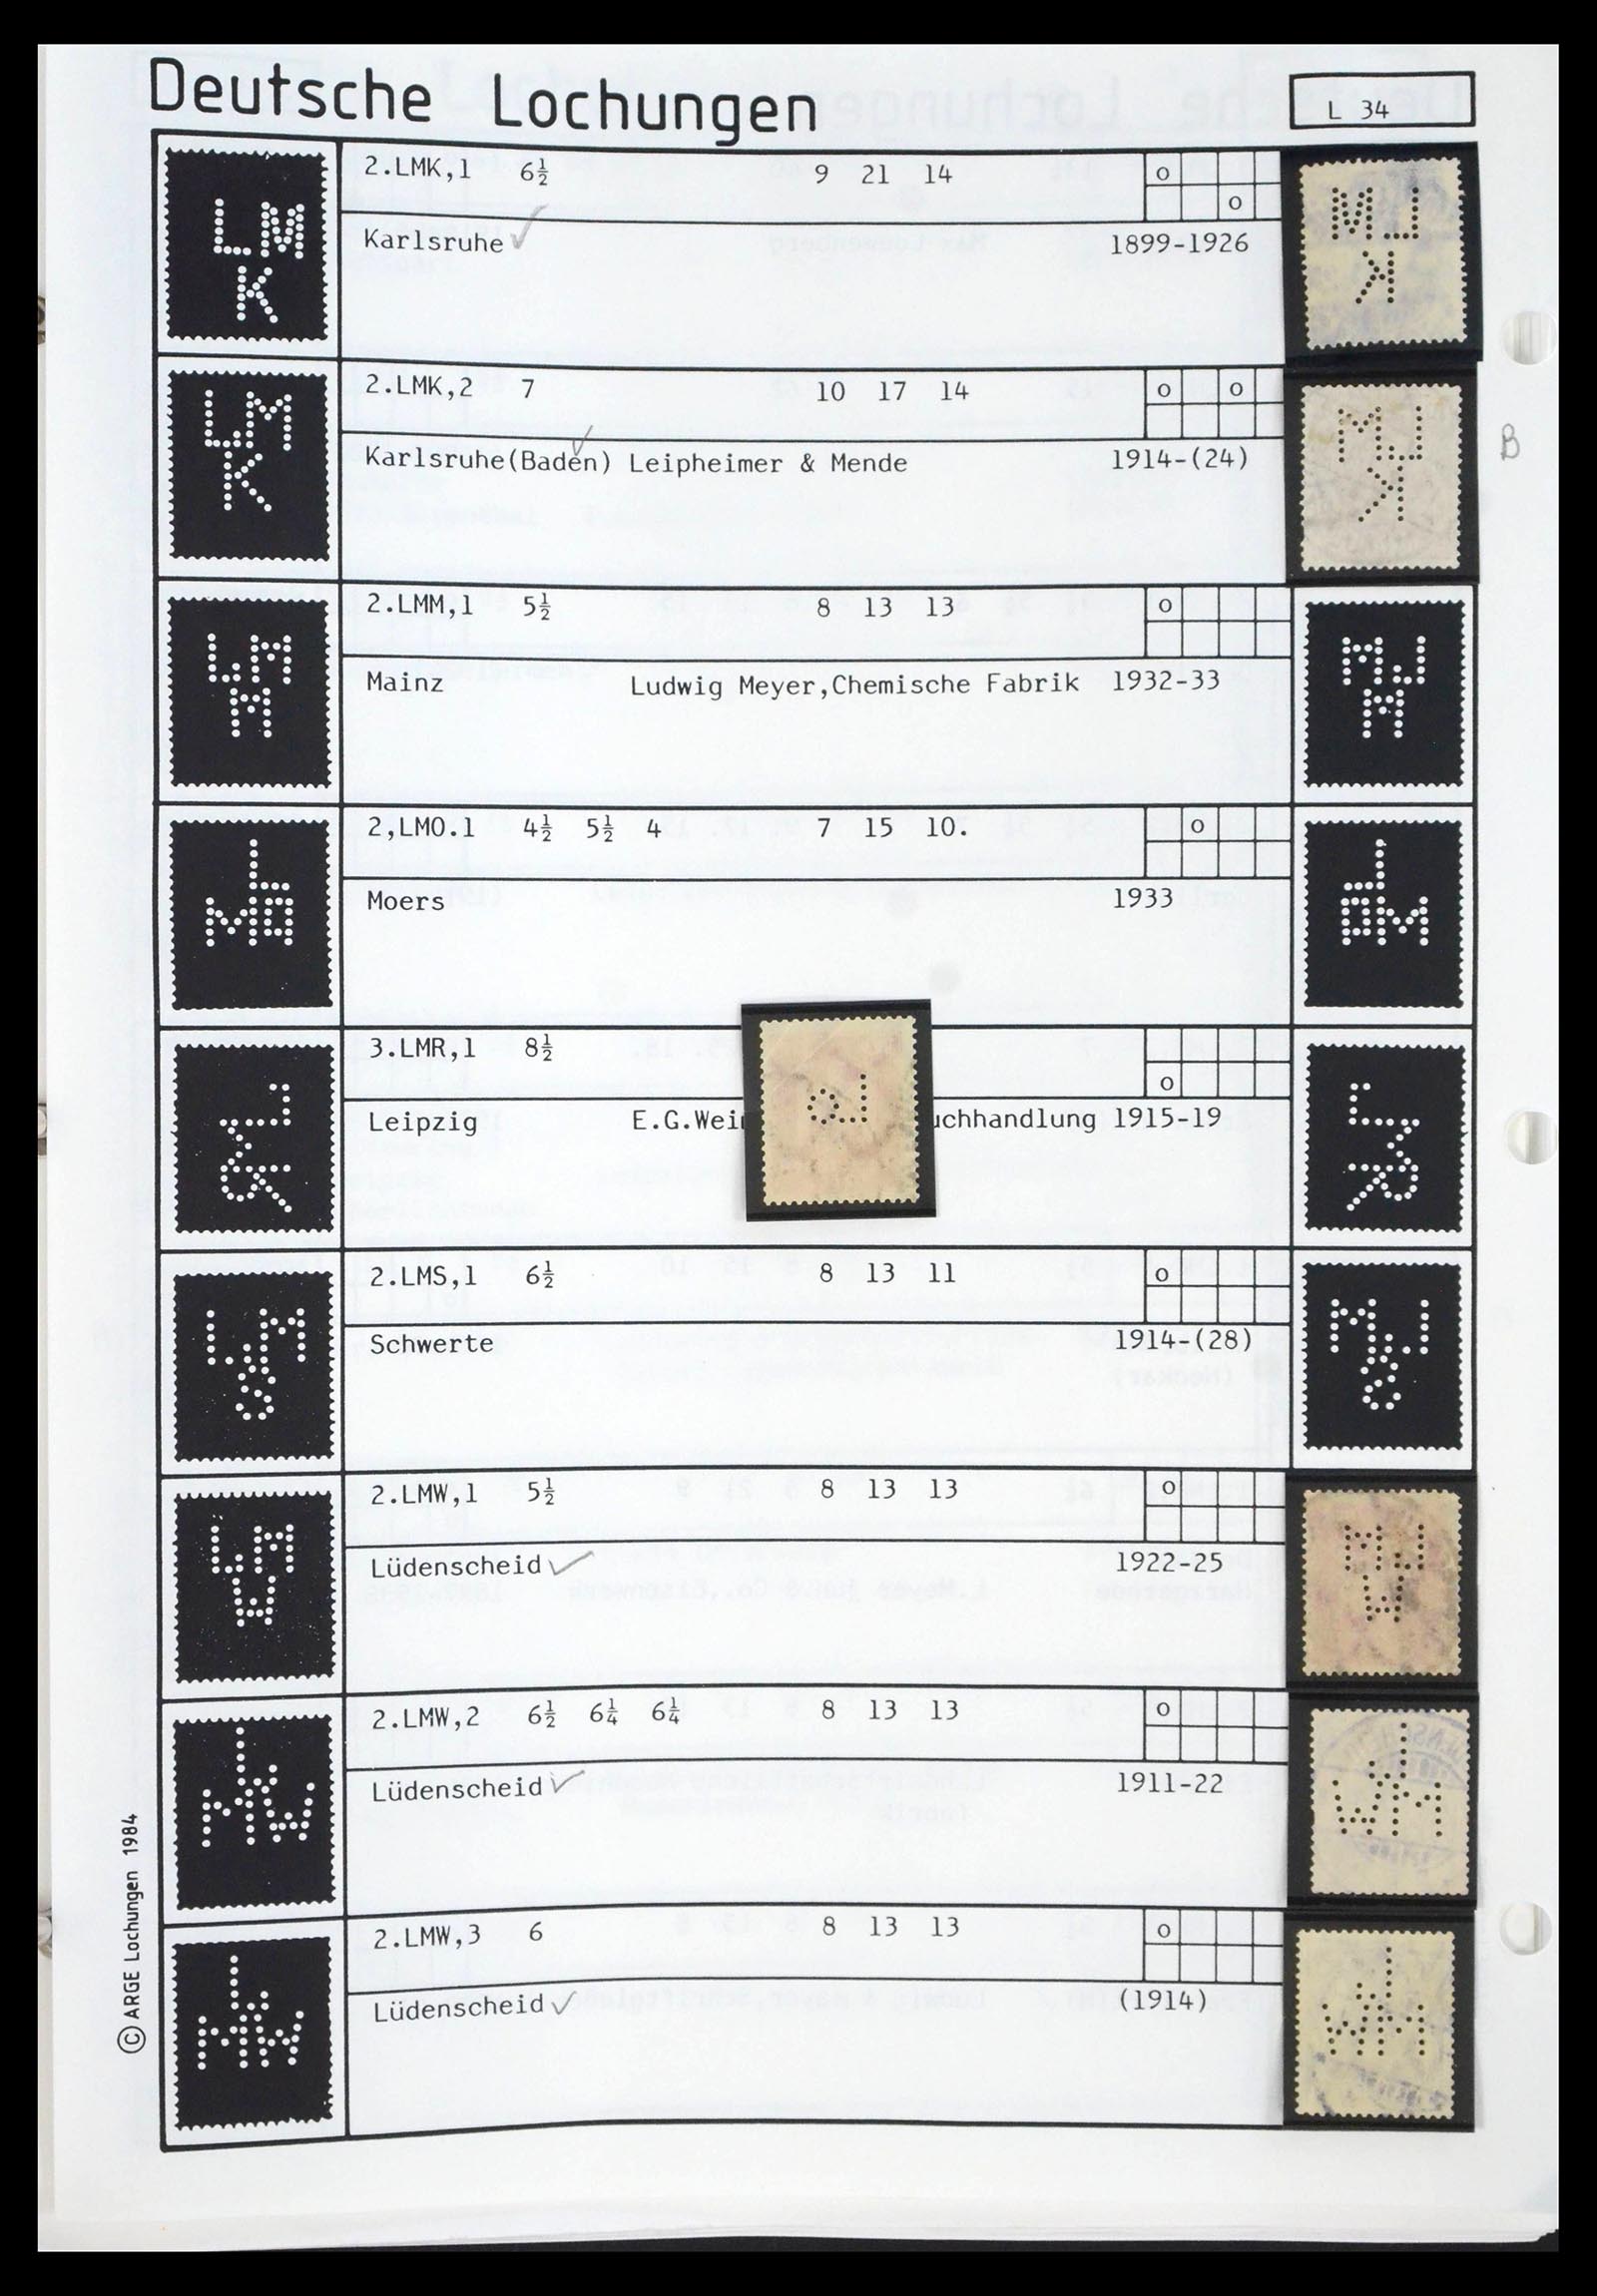 Deutsche Lochungen
L 34
LM
K
2.LMK,1 6½ 9 21 14 o
o
Karlsruhe ✓ 1899-1926
LM
K
2.LMK,2 7 10 17 14 o o
Karlsruhe(Baden) ✓ Leipheimer & Mende 1914-(24)
B
LM
M
2.LMM,1 5½ 8 13 13 o
Mainz Ludwig Meyer,Chemische Fabrik 1932-33
L
MO
2,LMO.1 4½ 5½ 4 7 15 10. o
Moers 1933
LMR
3.LMR,1 8½
o
Leipzig E.G.Wei uchhandlung 1915-19
LM
S
2.LMS,1 6½ 8 13 11 o
Schwerte 1914-(28)
LM
W
2.LMW,1 5½ 8 13 13 o
Lüdenscheid ✓ 1922-25
L
MW
2.LMW,2 6½ 6¼ 6¼ 8 13 13 o
Lüdenscheid ✓ 1911-22
L
MW
2.LMW,3 6 8 13 13 o
Lüdenscheid ✓ (1914)
© ARGE Lochungen 1984